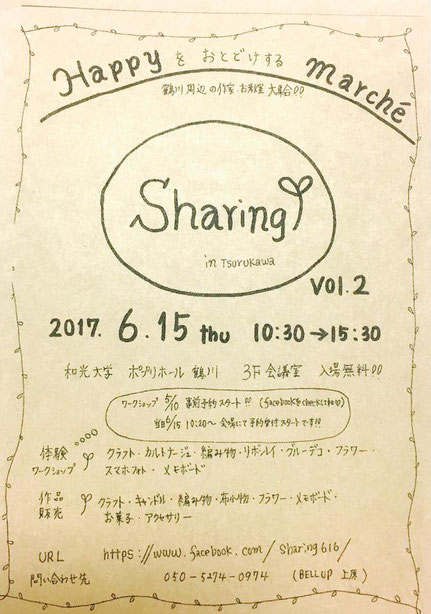 Happy を おとどけする marché
鶴川周辺の作家・お教室 大集合!!
Sharing
in Tsurukawa
vol.2
2017. 6.15 thu 10:30→15:30
和光大学 ポプリホール 鶴川 3F 会議室 入場無料!!
ワークショップ 5/10 事前予約スタート!! (facebookをcheckしてね♡)
当日6/15 10:20〜 会場にて予約受付スタートです!!
体験ワークショップ クラフト・カルトナージュ・編み物・リボンレイ・グルーデコ・フラワー・
スマホフォト・メモボード
作品販売 クラフト・キャンドル・編み物・布小物・フラワー・メモボード・
お菓子・アクセサリー
URL https://www.facebook.com/sharing616/
問い合わせ先 050-5274-0974 (BELLUP 上原)